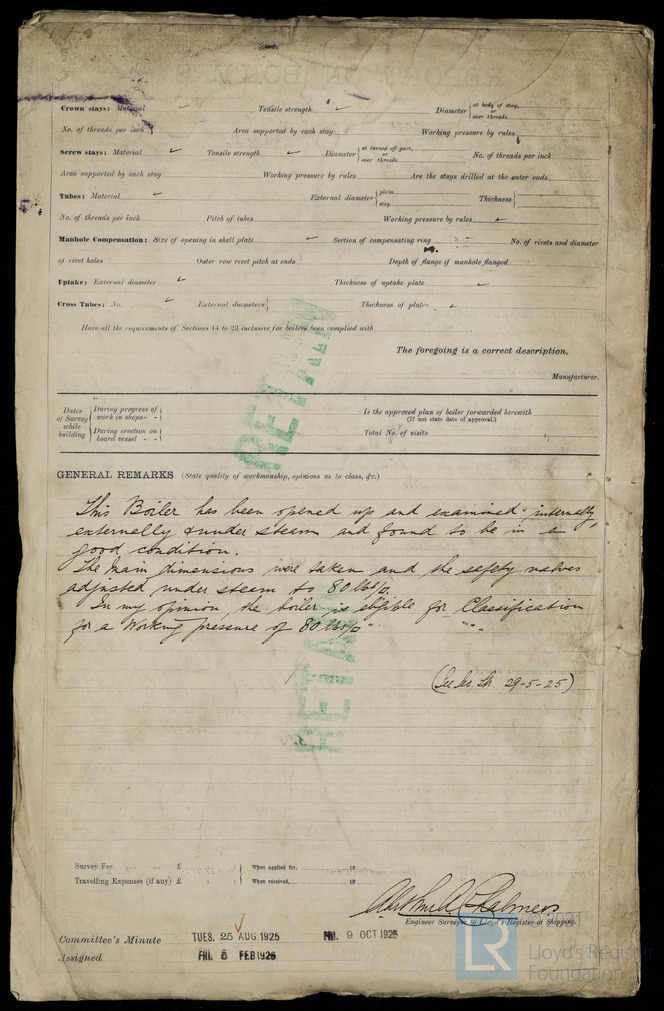 Crown stays: Material Tensile strength Diameter at body of stay, or over threads
No. of threads per inch Area supported by each stay Working pressure by rules
Screw stays: Material Tensile strength Diameter at turned off part, or over threads No. of threads per inch
Area supported by each stay Working pressure by rules Are the stays drilled at the outer ends
Tubes: Material External diameter plain stay Thickness
No. of threads per inch Pitch of tubes Working pressure by rules
Manhole Compensation: Size of opening in shell plate Section of compensating ring No. of rivets and diameter
of rivet holes Outer row rivet pitch at ends Depth of flange if manhole flanged
Uptake: External diameter Thickness of uptake plate
Cross Tubes: No. External diameters Thickness of plates
Have all the requirements of Sections 14 to 23 inclusive for boilers been complied with
The foregoing is a correct description,
Manufacturer.
Dates of Survey while building During progress of work in shops - - During erection on board vessel - -
Is the approved plan of boiler forwarded herewith
(If not state date of approval.)
Total No. of visits
RETAIN
GENERAL REMARKS (State quality of workmanship, opinions as to class, &c.)
This Boiler has been opened up and examined internally,
externally & under steam and found to be in a
good condition.
The main dimensions were taken and the safety valves
adjusted under steam to 80 lbs/□.
In my opinion, the boiler is eligible for Classification
for a Working pressure of 80 lbs/□"
RETAIN
29-5-25)
Survey Fee £ : : When applied for, 19
Travelling Expenses (if any) £ : : When received, 19
Arthur A. Chalmers
Engineer Surveyor to Lloyd's Register of Shipping.
Committee's Minute TUES. 25 AUG 1925 FRI. 9 OCT 1925
Assigned FRI. 5 FEB 1926
© 2021
LR
Lloyd's Register
Foundation